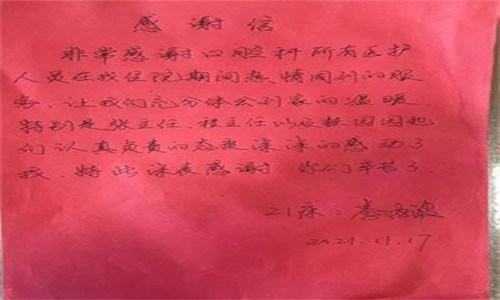 感谢信
非常感谢口腔科所有医护
人员在我住院期间热情周到的服
务，让我们充分体会到家的温暖．
特别是张主任．程主任以及
们认真负责的态度深深的感动了
我，特此深表感谢 你们辛苦了．
21床：李
2021.11.17